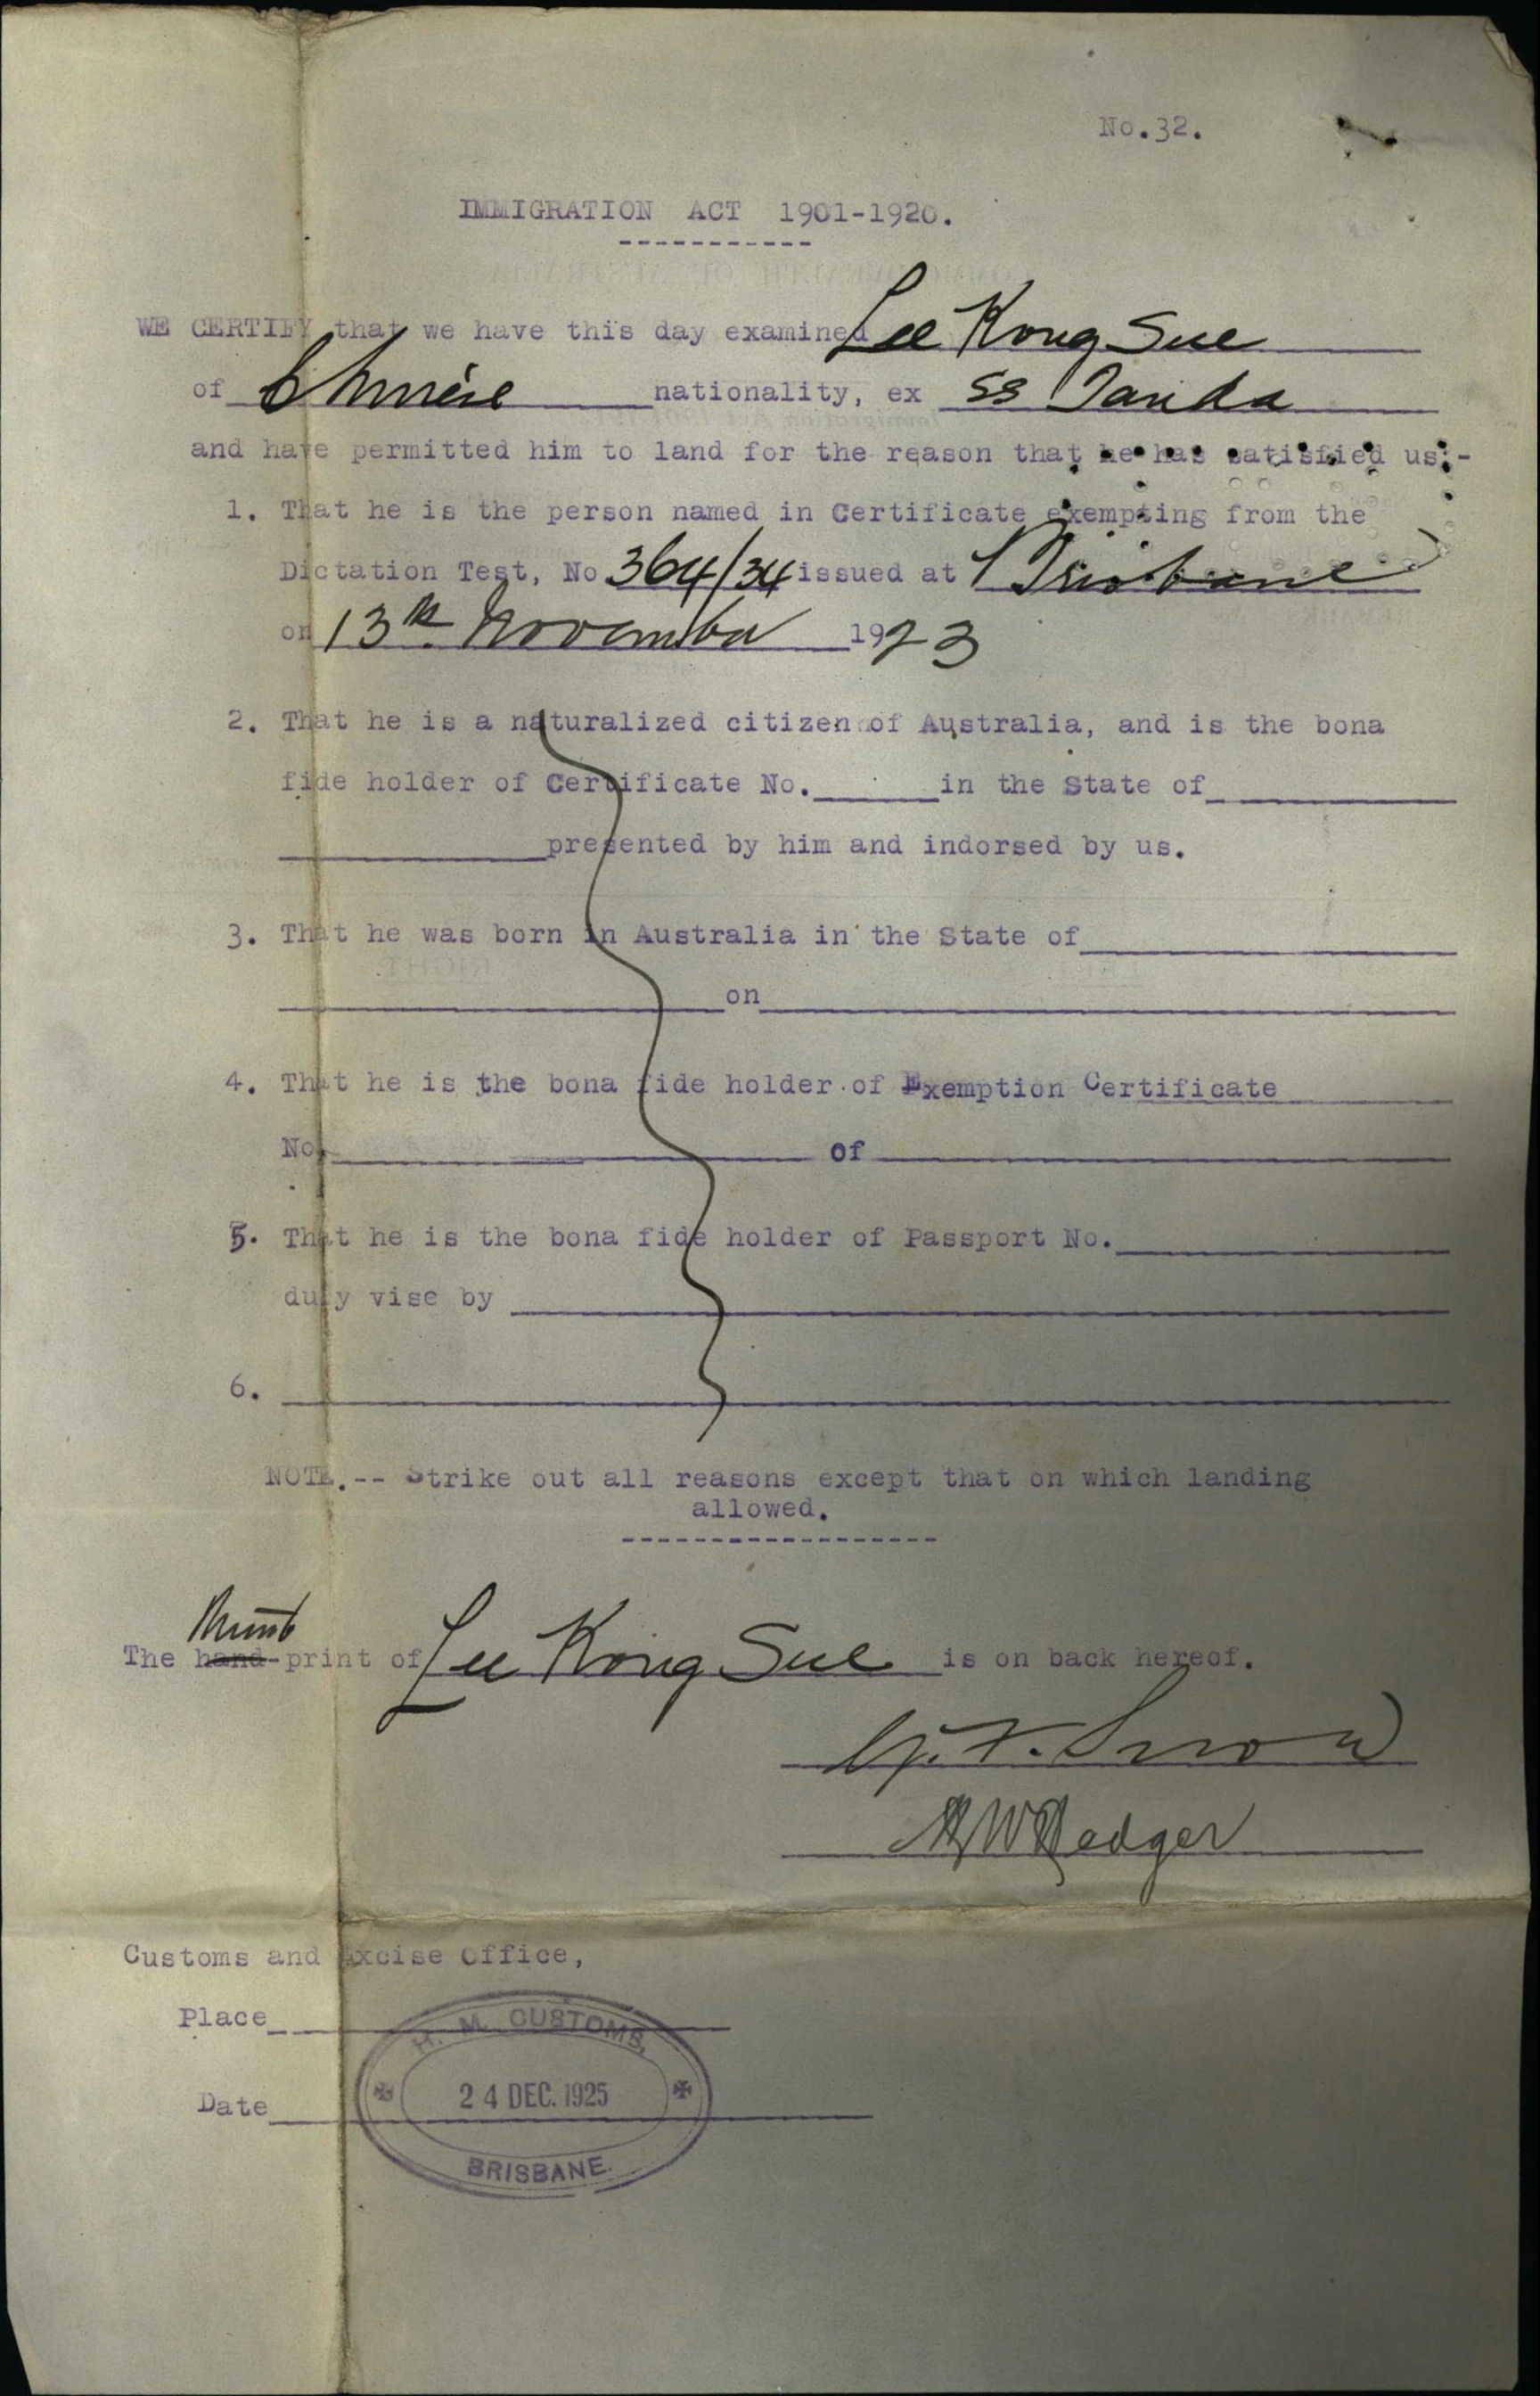 No.32.
IMMIGRATION ACT 1901-1920.
-----------
WE CERTIFY that we have this day examined Lee Kong Sue
of Chinese nationality, ex SS Tanda
and have permitted him to land for the reason that he has satisfied us:-
1. That he is the person named in Certificate exempting from the
Dictation Test, No 364/34 issued at Brisbane
on 13th November 1923
2. That he is a naturalized citizen of Australia, and is the bona
fide holder of Certificate No. ______ in the State of ______
______ presented by him and indorsed by us.
3. That he was born in Australia in the State of ______
______ on ______
4. That he is the bona fide holder of Exemption Certificate
No. ______ of ______
5. That he is the bona fide holder of Passport No. ______
duly vise by ______
6. ______
NOTE.-- Strike out all reasons except that on which landing
allowed.
------------------
Thumb
The hand-print of Lee Kong Sue is on back hereof.
Snow
Badger
Customs and Excise Office,
Place ______
H. M. CUSTOMS,
Date ______
24 DEC. 1925
BRISBANE.